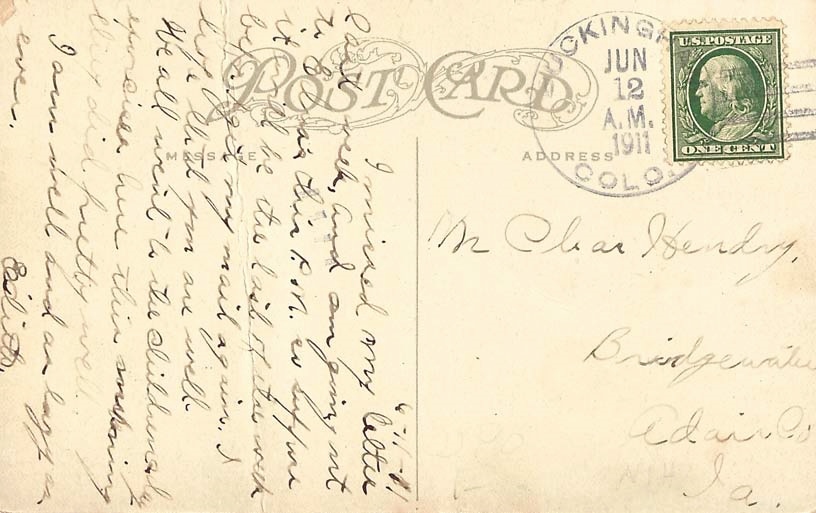 POST CARD
MESSAGE
ADDRESS
JUN
12
A.M.
1911
COLO.
U.S. POSTAGE
ONE CENT
Mr Clear Hendry,
Bridgewater
Adair Co
Ia.
6-11-'11
I missed my letter
last week, and am going out
to this P.M. so suppose
it will be the last of the week
before I get my mail again. I
hope that you are well.
We all went to the childrens day
exercises here this morning
they did pretty well.
I am well and as lazy as
ever.
Edith